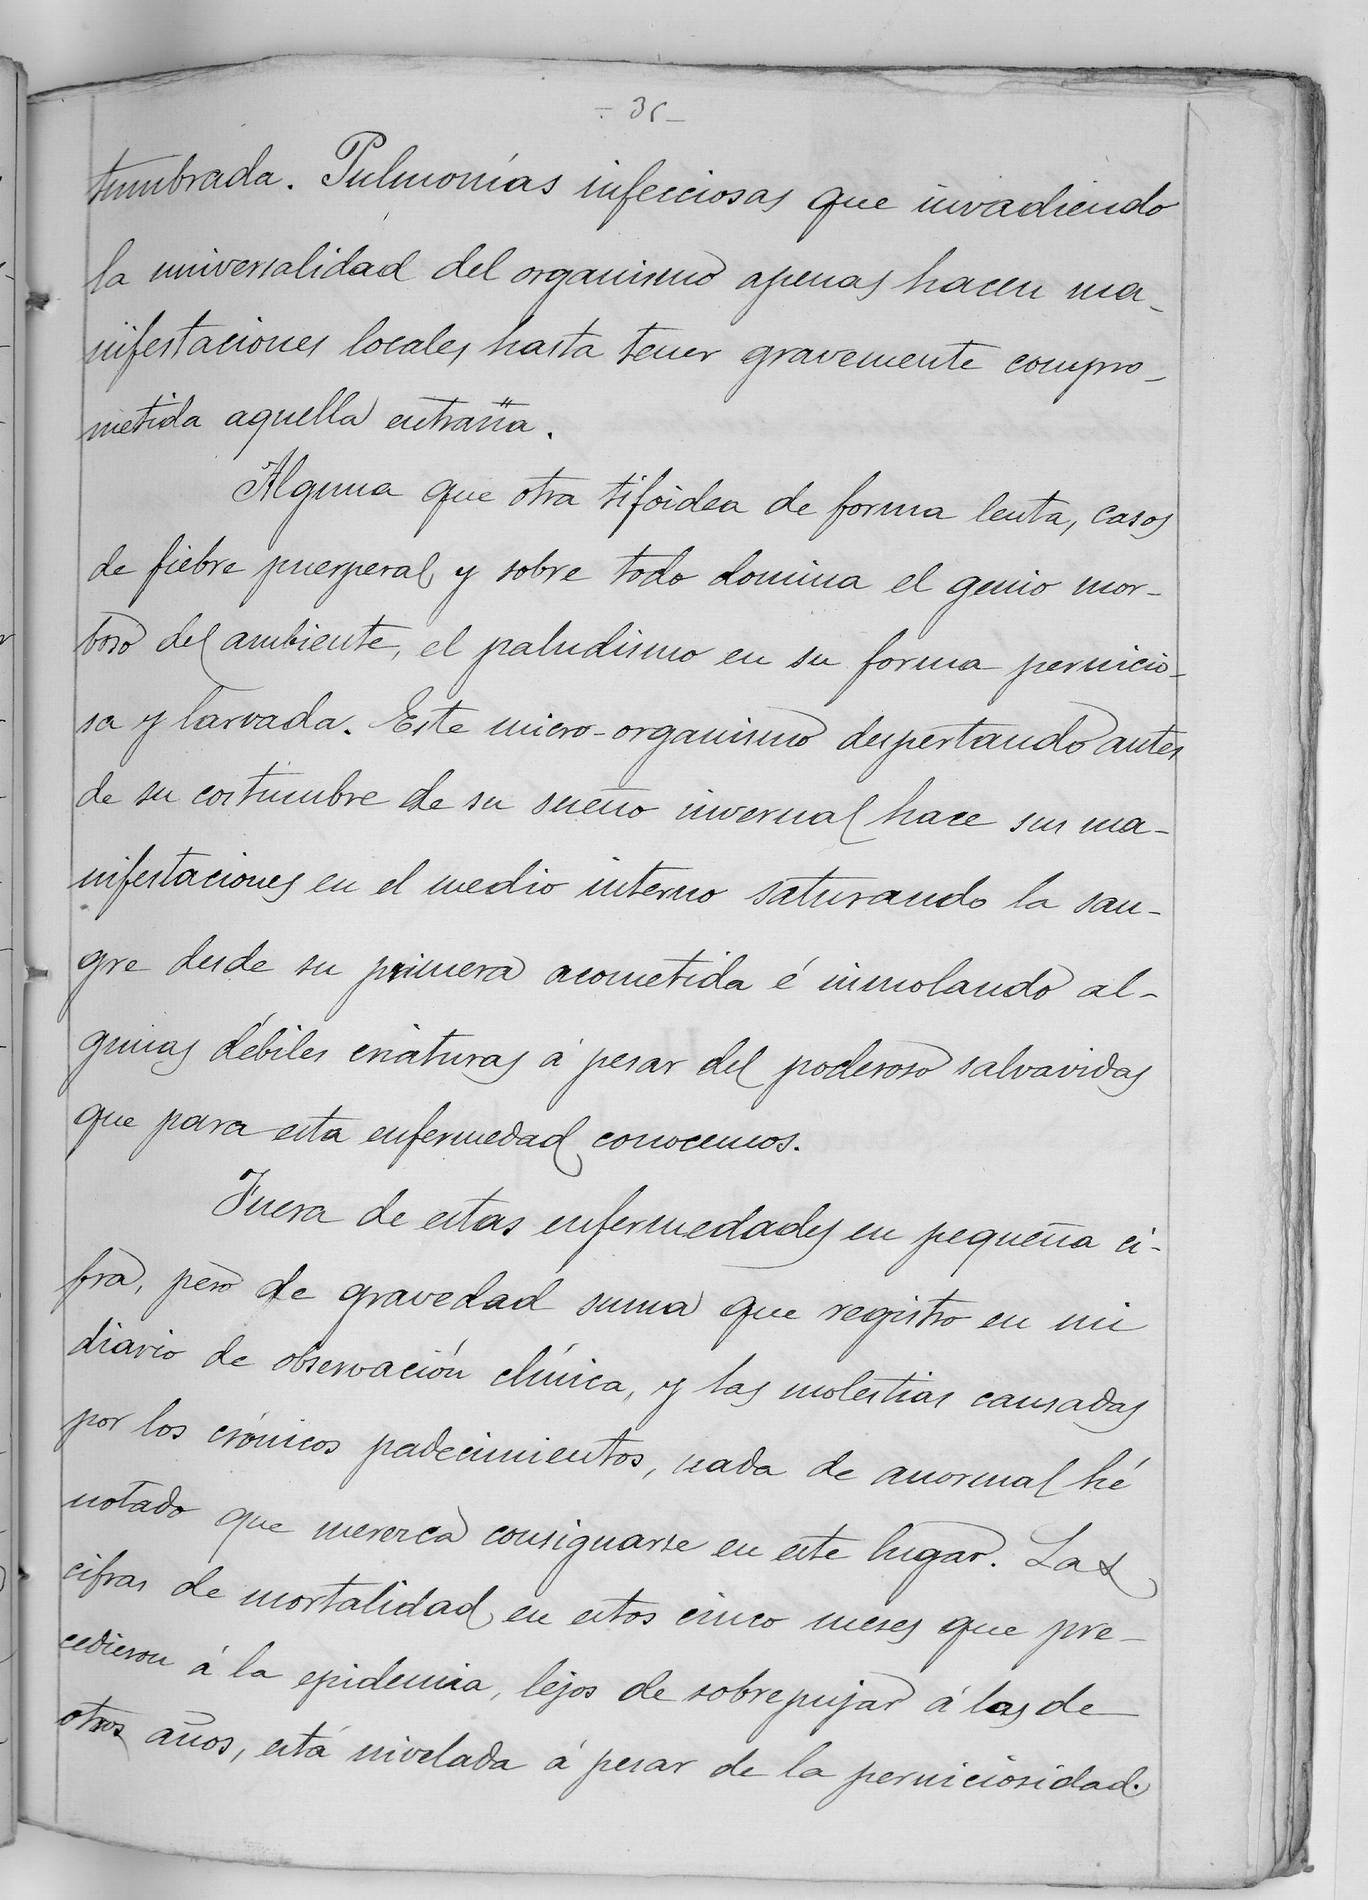 - 35 -
tumbrada. Pulmonías infecciosas que invadiendo
la universalidad del organismo apenas hacen ma-
nifestaciones locales hasta tener gravemente compro-
metida aquella entraña.
Alguna que otra tifóidea de forma lenta, casos
de fiebre puerperal y sobre todo domina el genio mor-
boso del ambiente, el paludismo en su forma pernicio-
sa y larvada. Este micro-organismo despertando antes
de su costumbre de su sueño invernal hace sus ma-
nifestaciones en el medio interno saturando la san-
gre desde su primera acometida é inmolando al-
gunas débiles criaturas á pesar del poderoso salvavidas
que para esta enfermedad conocemos.
Fuera de estas enfermedades en pequeña ci-
fra, pero de gravedad suma que registro en mi
diario de observación clínica, y las molestias causadas
por los crónicos padecimientos, nada de anormal hé
notado que merezca consignarse en este lugar. Las
cifras de mortalidad en estos cinco meses que pre-
cedieron á la epidemia, lejos de sobrepujar á las de
otros años, está nivelada á pesar de la perniciosidad.